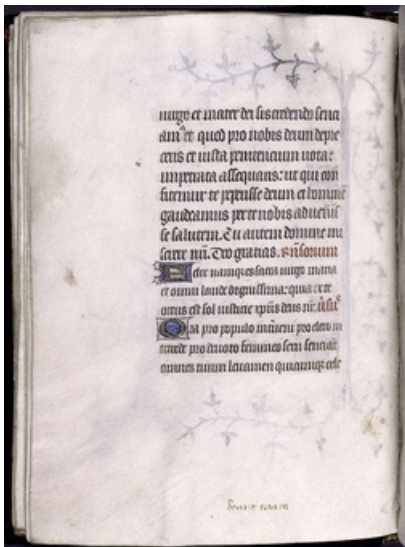 uirgo et mater dei sis credendo senci
amꝰ et quod pro nobis deum depre
ceris et iusta penitencium uota:
impetrata assequaris: ut qui con
fitemur te peperisse deum et hominē
gaudeamus per te nobis aduenis
se salutem. Tu autem domine mi
serere nr̄i. Deo gratias. R̄sorium
Felix namque es sacra uirgo maria
et omni laude dignissima: quia ex te
ortus est sol iusticie xp̄us deus nr̄. v̄sus
Ora pro populo interueni pro clero in
tercede pro deuoto femineo sexu senciāt
omnes tuum leuamen quicumqꝫ cele